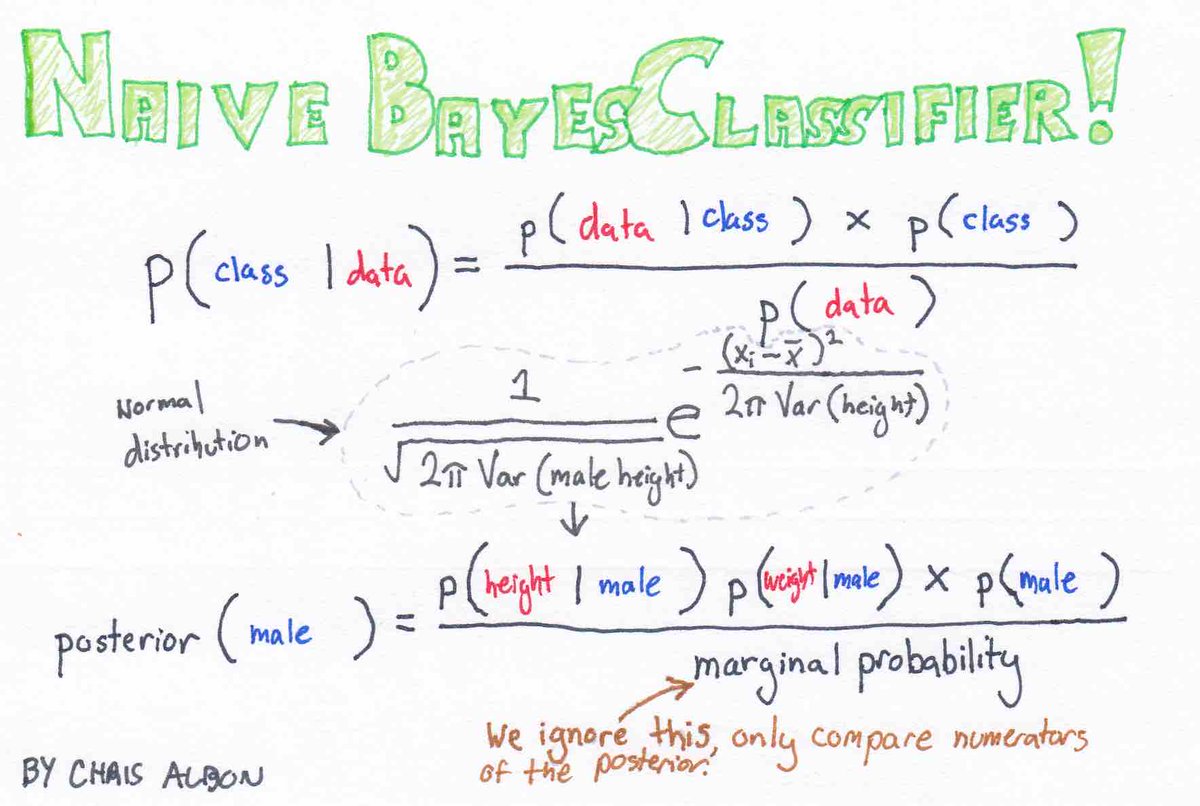 NAIVE BAYES CLASSIFIER!
p(class | data) = p(data | class) × p(class) / p(data)
Normal distribution → 1 / √2π Var(male height) e^-(xᵢ - x̄)² / 2π Var(height)
↓
posterior(male) = p(height | male) p(weight | male) × p(male) / marginal probability
We ignore this, only compare numerators
of the posterior.
BY CHRIS ALBON